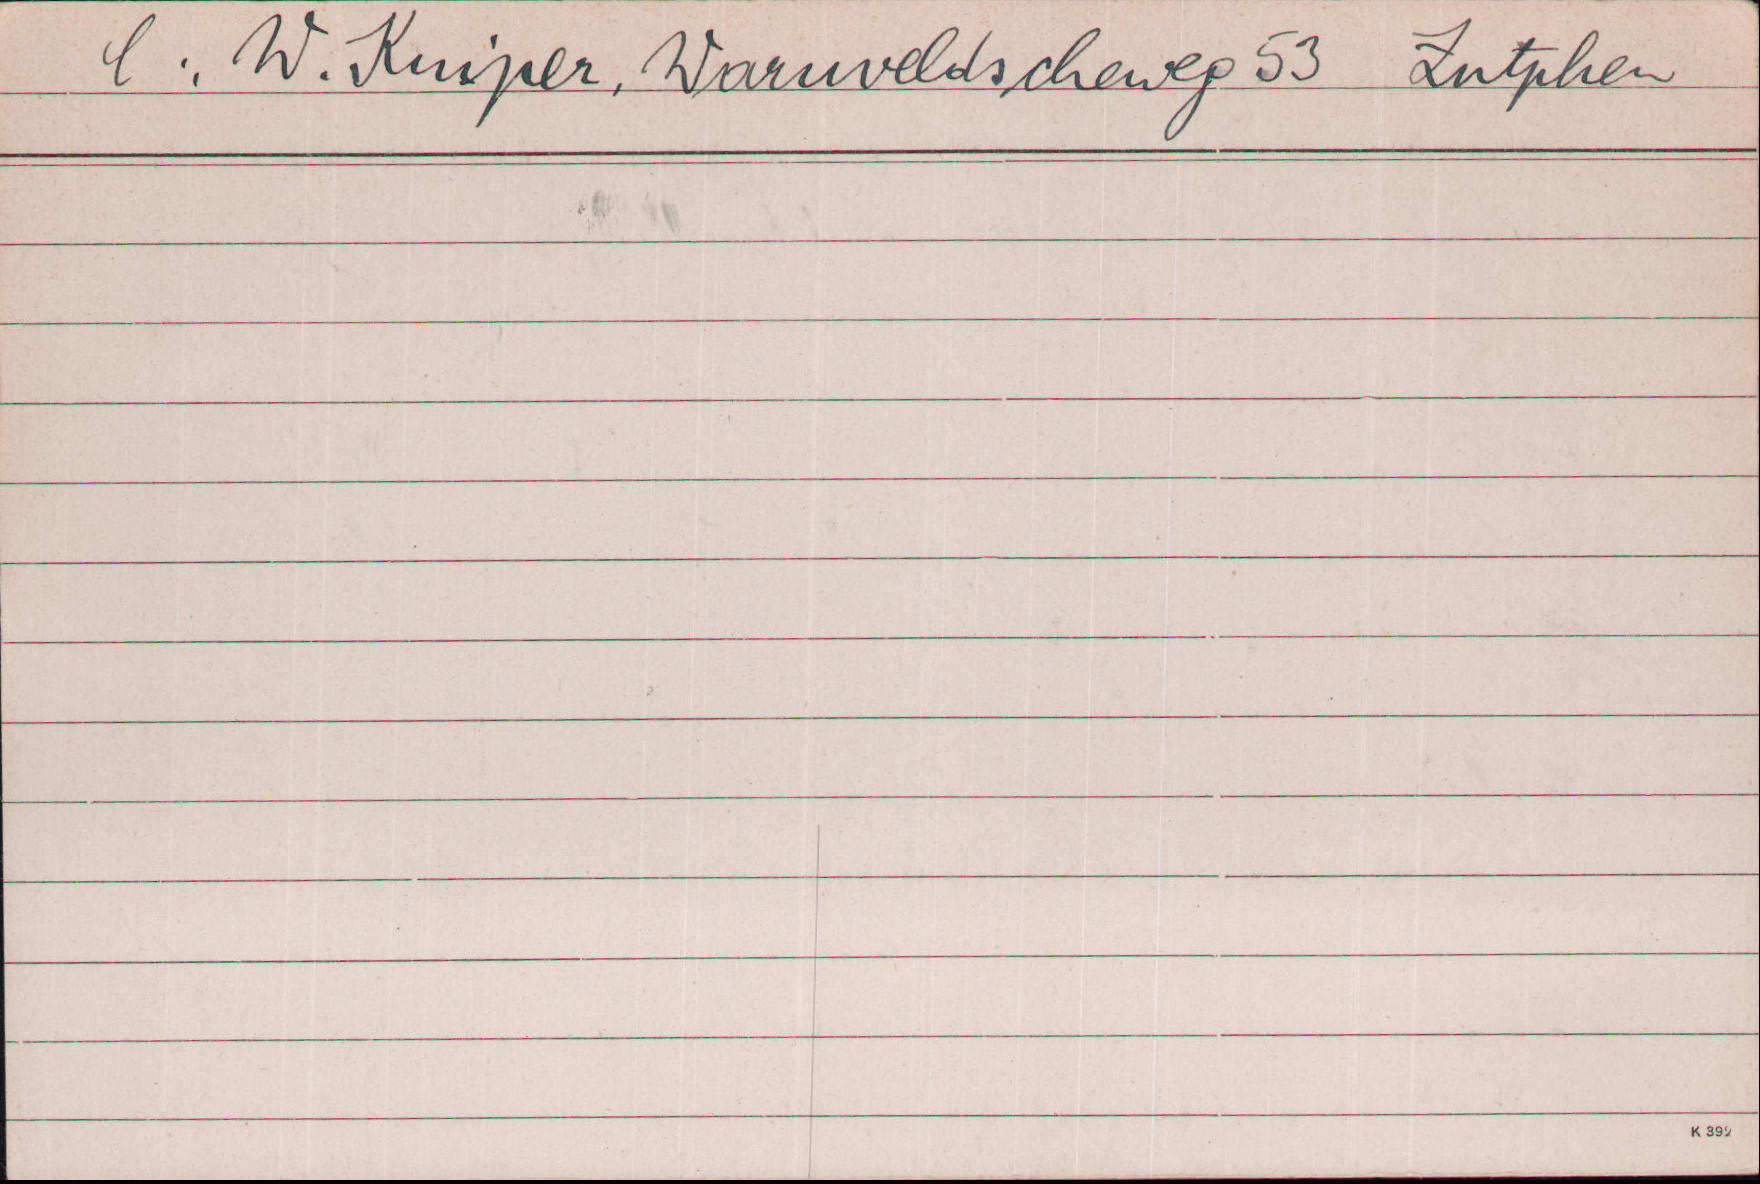 C., W. Kuiper, Warnveldscheweg 53 Zutphen
K 392